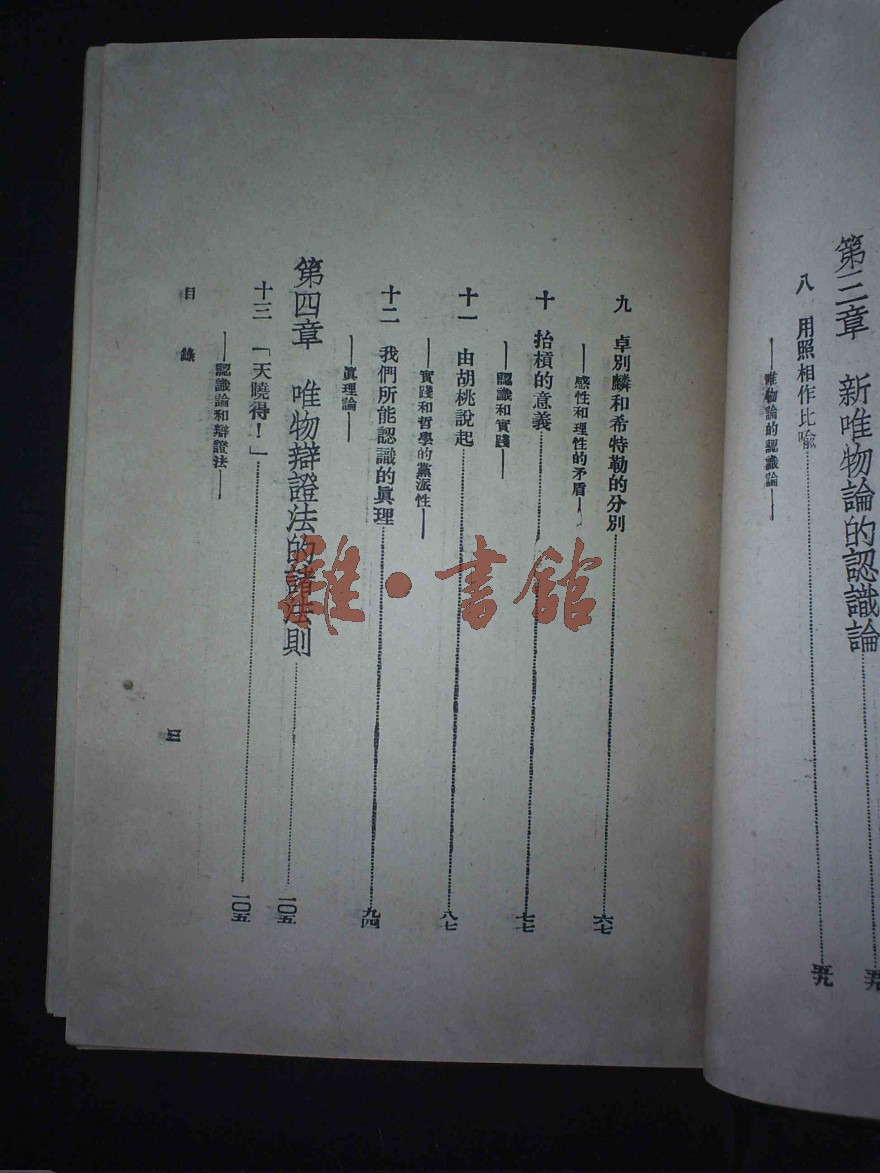 第三章　新唯物論的認識論……五九
八　用照相作比喩……五九
——唯物論的認識論——
九　卓別麟和希特勒的分別……六七
——感性和理性的矛盾——
十　抬槓的意義……七七
——認識和實踐——
十一　由胡桃說起……八七
——實踐和哲學的黨派性——
十二　我們所能認識的眞理……九四
——眞理論——
第四章　唯物辯證法的諸法則……一〇五
十三　「天曉得！」……一〇五
——認識論和辯證法——
目錄
三
雜·書館